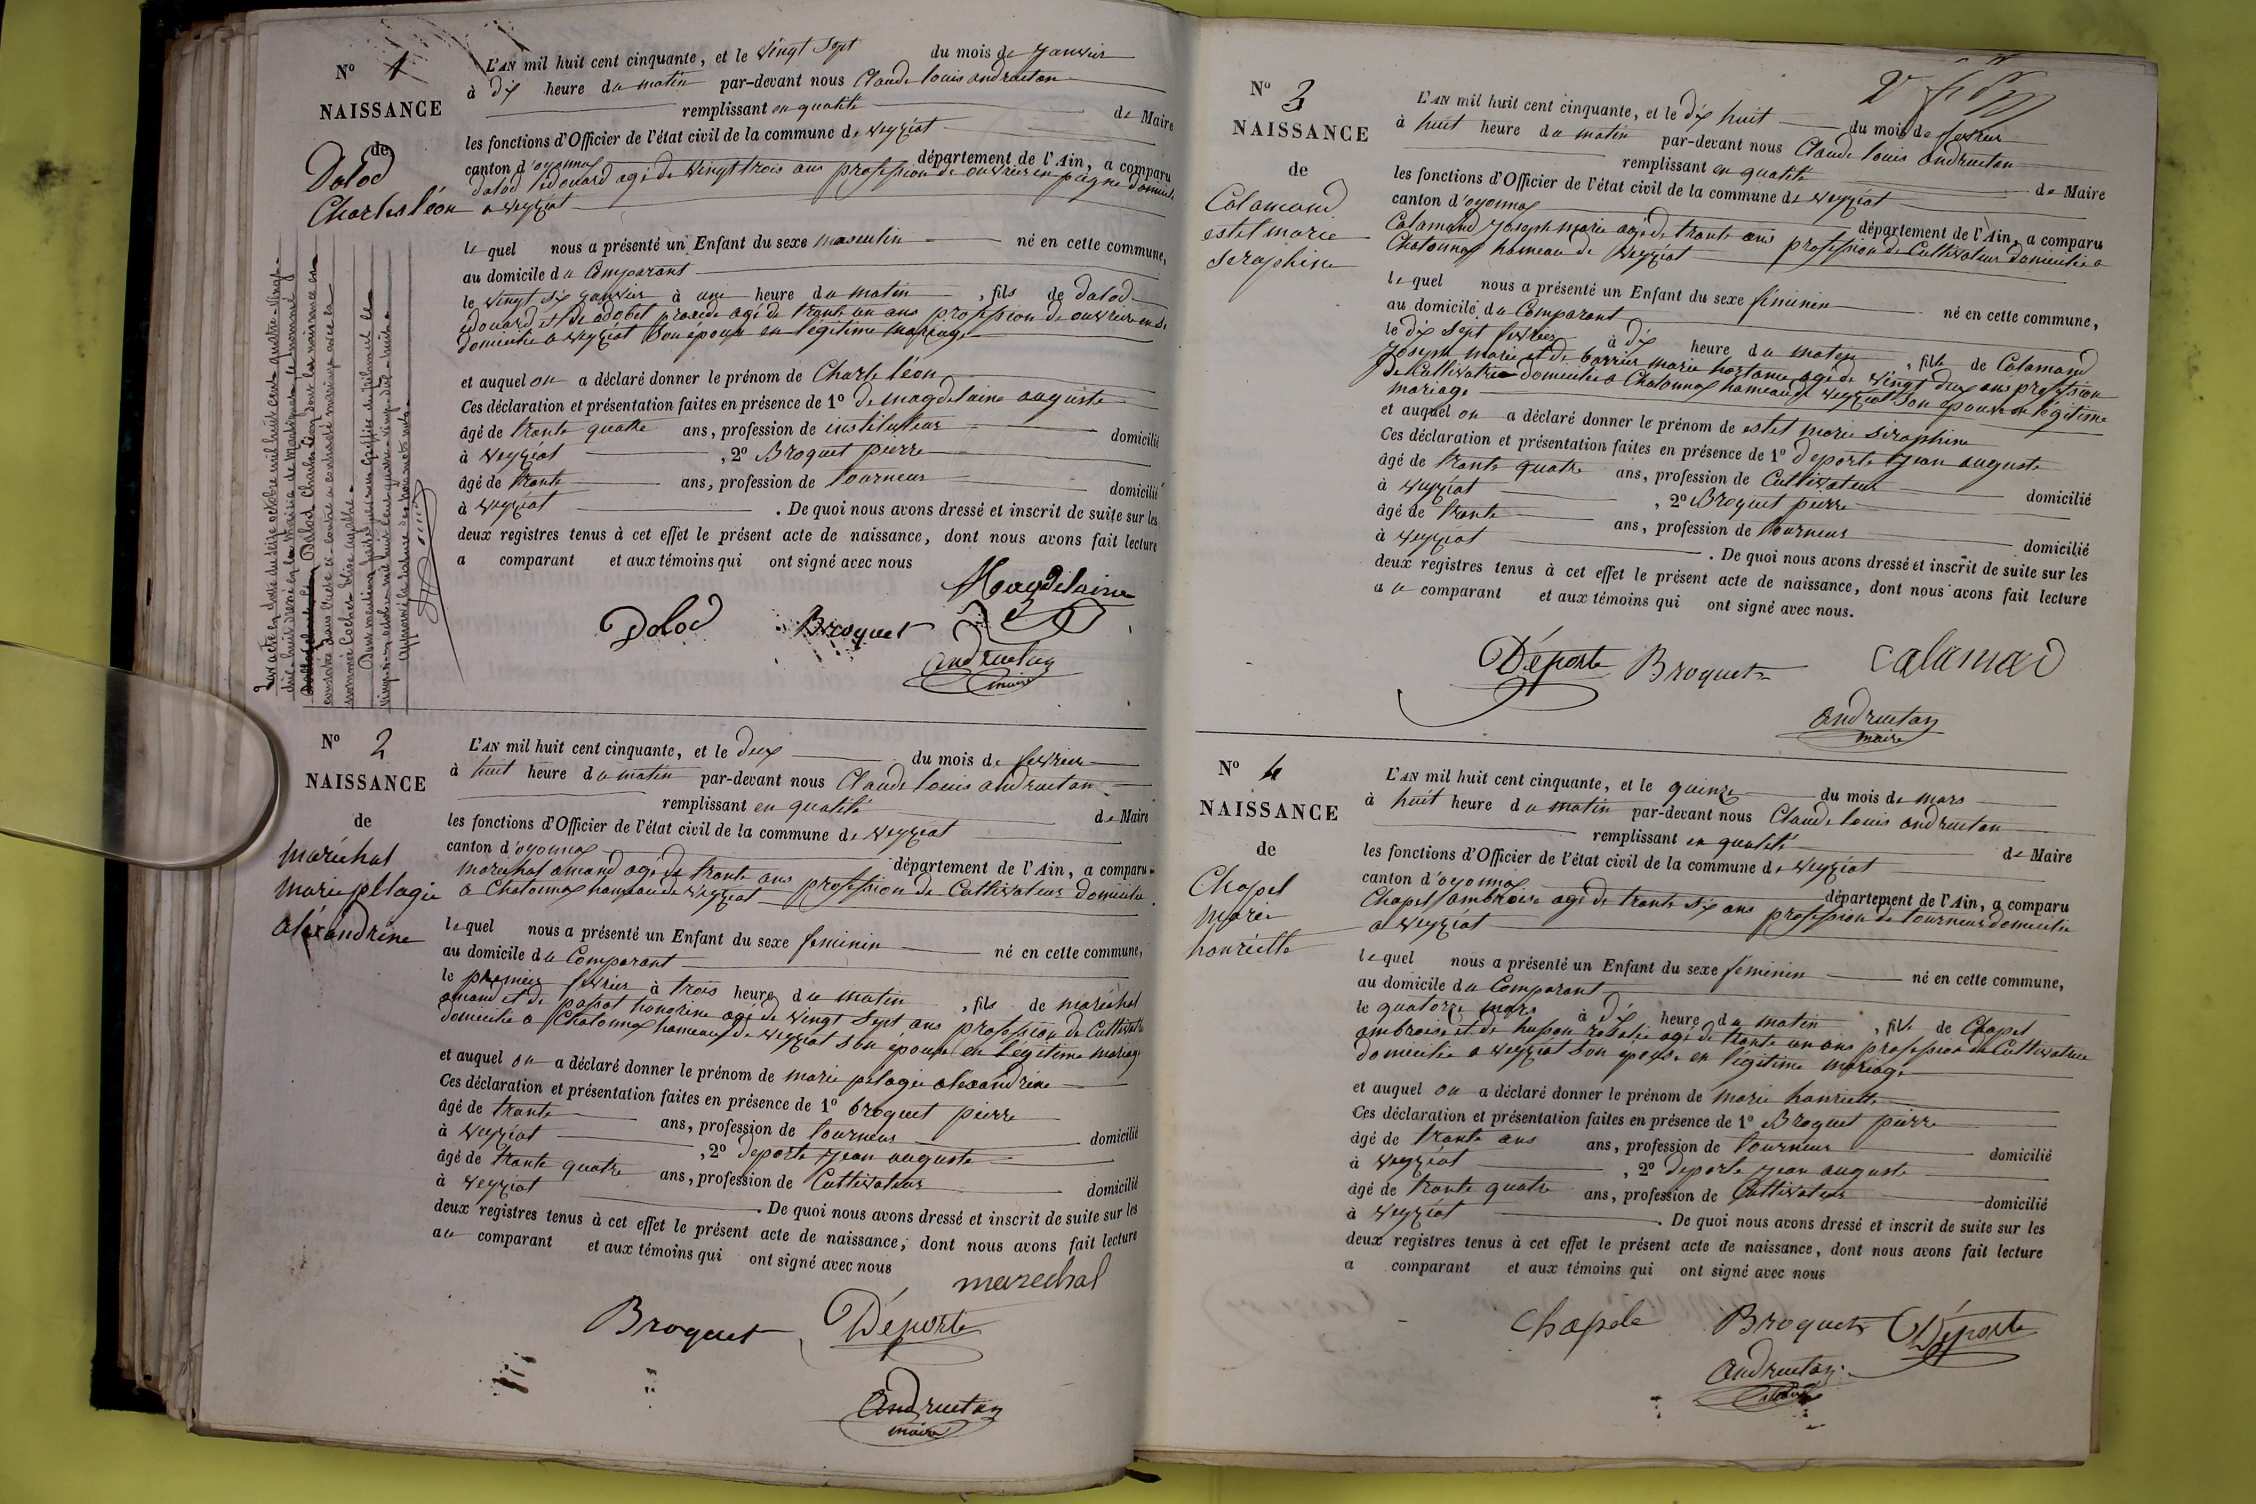 N° 1
NAISSANCE
de
Dalod
Charles léon
L'AN mil huit cent cinquante, et le vingt sept du mois de janvier
à dix heure du matin par-devant nous Claude louis andruetan
remplissant en qualité de Maire
les fonctions d'Officier de l'état civil de la commune de veyziat
canton d'oyonnax département de l'Ain, a comparu
dalod édouard agé de vingt trois ans profession de ouvrier en peigne domicilié
a veyziat
le quel nous a présenté un Enfant du sexe masculin né en cette commune,
au domicile du Comparant
le vingt six janvier à une heure du matin, fils de dalod
édouard et de adobet agé de trante un ans profession de ouvriere
domicilié a veyziat Son épouse en légitime mariage
et auquel on a déclaré donner le prénom de Charle léon
Ces déclaration et présentation faites en présence de 1° de magdelaine auguste
âgé de trante quatre ans, profession de instituteur domicilié
à veyziat, 2° Broquet pierre
âgé de trante ans, profession de tourneur domicilié
à veyziat. De quoi nous avons dressé et inscrit de suite sur les
deux registres tenus à cet effet le présent acte de naissance, dont nous avons fait lecture
a comparant et aux témoins qui ont signé avec nous
Magdelaine
Dalod Broquet
andruetan
maire
Par acte en date du seize octobre mil huit cent quatre-vingt-
dix-huit dressé en la mairie de le nommé
Dalod Charles Léon dont la naissance est
constatée dans l'acte ci-contre a contracté mariage avec la
nommée Cochet
Dont mention faite par nous Greffier du tribunal le
vingt octobre mil huit cent quatre-vingt-dix-huit
N° 2
NAISSANCE
de
maréchal
marie pélagie
aléxandrine
L'AN mil huit cent cinquante, et le deux du mois de fevrier
à huit heure du matin par-devant nous Claude louis andruetan
remplissant en qualité de Maire
les fonctions d'Officier de l'état civil de la commune de veyziat
canton d'oyonnax département de l'Ain, a comparu
maréchal amand agé de trante ans profession de Cultivateur domicilié
a Chatonnax hameau de veyziat
le quel nous a présenté un Enfant du sexe feminin né en cette commune,
au domicile du Comparant
le premier fevrier à trois heure du matin, fils de maréchal
amand et de passot honorine agé de vingt sept ans profession de Cultivatr
domicilié a Chatonnax hameau de veyziat son épouse en légitime mariage
et auquel on a déclaré donner le prénom de marie pélagie alexandrine
Ces déclaration et présentation faites en présence de 1° broquet pierre
âgé de trante ans, profession de tourneur domicilié
à veyziat, 2° deporte jean auguste
âgé de trante quatre ans, profession de Cultivateur domicilié
à veyziat. De quoi nous avons dressé et inscrit de suite sur les
deux registres tenus à cet effet le présent acte de naissance, dont nous avons fait lecture
au comparant et aux témoins qui ont signé avec nous
marechal
Broquet Déporte
Andruetan
maire
N° 3
NAISSANCE
de
Calamand
estel marie
séraphine
L'AN mil huit cent cinquante, et le dix huit du mois de fevrier
à huit heure du matin par-devant nous Claude louis andruetan
remplissant en qualité de Maire
les fonctions d'Officier de l'état civil de la commune de veyziat
canton d'oyonnax département de l'Ain, a comparu
Calamand joseph marie agé de trante ans profession de Cultivateur domicilié a
Chatonnax hameau de veyziat
le quel nous a présenté un Enfant du sexe féminin né en cette commune,
au domicile du Comparant
le dix sept fevrier à dix heure du matin, fille de Calamand
joseph marie et de marie agé de vingt deux ans profession
de Cultivatrice domicilié a Chatonnax hameau de veyziat son épouse en légitime
mariage
et auquel on a déclaré donner le prénom de estel marie séraphine
Ces déclaration et présentation faites en présence de 1° deporte jean auguste
âgé de trante quatre ans, profession de Cultivateur domicilié
à veyziat, 2° Broquet pierre
âgé de trante ans, profession de tourneur domicilié
à veyziat. De quoi nous avons dressé et inscrit de suite sur les
deux registres tenus à cet effet le présent acte de naissance, dont nous avons fait lecture
au comparant et aux témoins qui ont signé avec nous.
Déporte Broquet Calamad
andruetan
maire
N° 4
NAISSANCE
de
Chapel
marie
henriette
L'AN mil huit cent cinquante, et le quinze du mois de mars
à huit heure du matin par-devant nous Claude louis andruetan
remplissant en qualité de Maire
les fonctions d'Officier de l'état civil de la commune de veyziat
canton d'oyonnax département de l'Ain, a comparu
Chapel ambroise agé de trante six ans profession de tourneur domicilié
a veyziat
le quel nous a présenté un Enfant du sexe féminin né en cette commune,
au domicile du Comparant
le quatorze mars à dix heure du matin, fille de Chapel
ambroise et de husson rosalie agé de trante un ans profession de Cultivatrice
domicilié a veyziat son épouse en légitime mariage
et auquel on a déclaré donner le prénom de marie hanriette
Ces déclaration et présentation faites en présence de 1° Broquet pierre
âgé de trante ans ans, profession de tourneur domicilié
à veyziat, 2° deporte jean auguste
âgé de trante quatre ans, profession de Cultivateur domicilié
à veyziat. De quoi nous avons dressé et inscrit de suite sur les
deux registres tenus à cet effet le présent acte de naissance, dont nous avons fait lecture
a comparant et aux témoins qui ont signé avec nous
Chapele Broquet Déporte
andruetan
maire